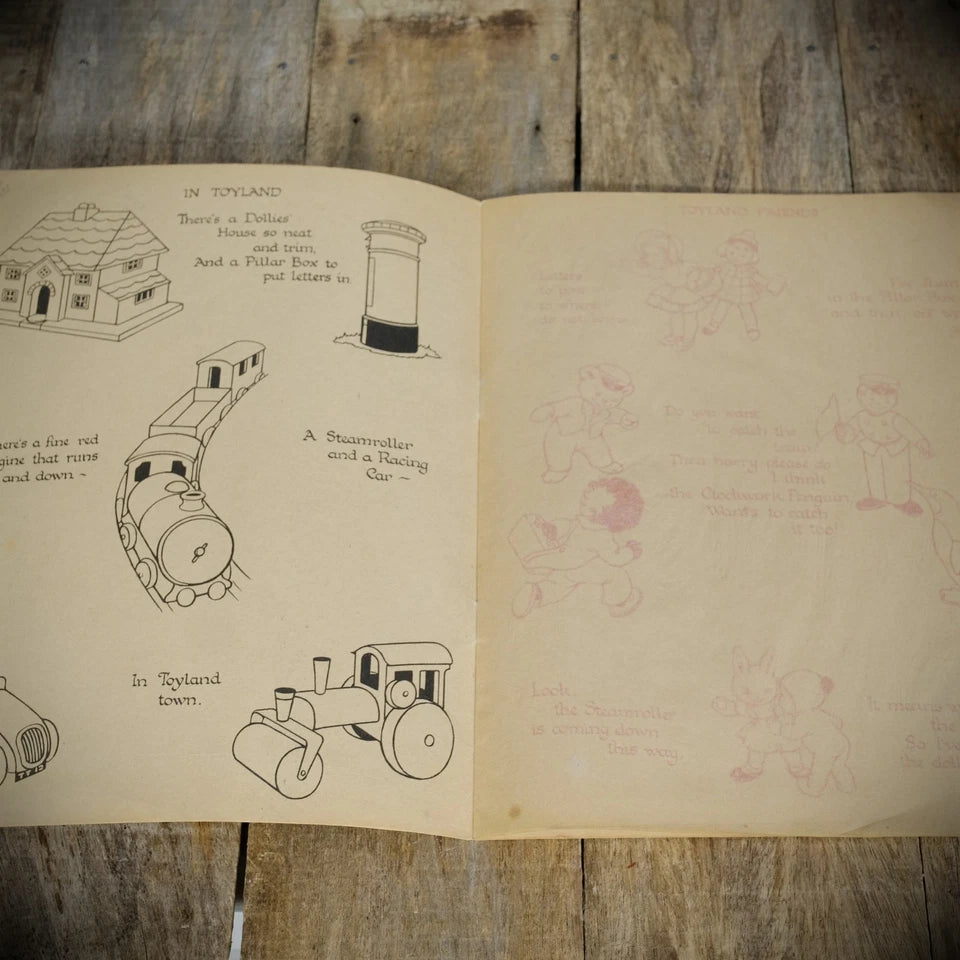 IN TOYLAND
There's a Dollies'
House so neat
and trim,
And a Pillar Box to
put letters in.
here's a fine red
gine that runs
and down ~
A Steamroller
and a Racing
Car ~
In Toyland
town.
TY 13
TOYLAND FRIENDS
Letters
to
to where
do not know
in the Pillar Box
and trot off
Do you want
to catch the
train?
Then hurry please do
I think
the Clockwork Penguin
Wants to catch
it too!
Look,
the Steamroller
is coming down
this way,
It means
the
So I've
the doll